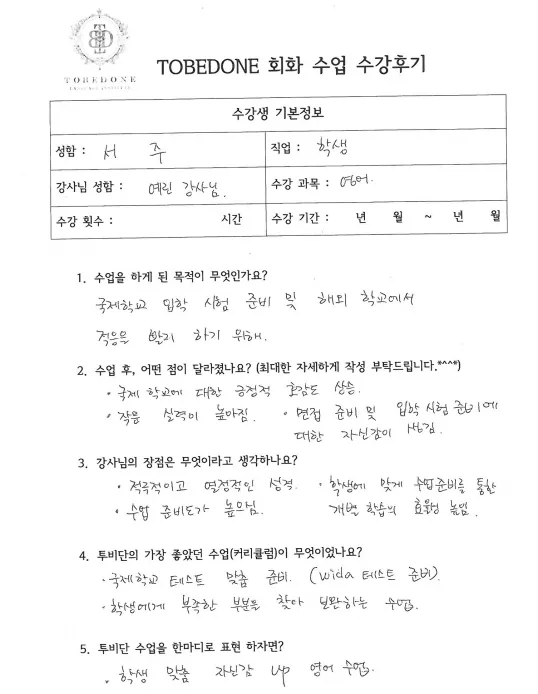 TOBEDONE
TOBEDONE 회화 수업 수강후기
수강생 기본정보
성함 : 서 주
직업 : 학생
강사님 성함 : 예린 강사님.
수강 과목 : 영어.
수강 횟수 : 시간
수강 기간 : 년 월 ~ 년 월
1. 수업을 하게 된 목적이 무엇인가요?
국제학교 입학 시험 준비 및 해외 학교에서
적응을 빨리 하기 위해.
2. 수업 후, 어떤 점이 달라졌나요? (최대한 자세하게 작성 부탁드립니다.*^^*)
· 국제 학교에 대한 긍정적 호감도 상승.
· 작문 실력이 높아짐. · 면접 준비 및 입학 시험 준비에
대한 자신감이 생김.
3. 강사님의 장점은 무엇이라고 생각하나요?
· 적극적이고 열정적인 성격. · 학생에 맞게 수업준비를 통한
· 수업 준비도가 높으심. 개별 학습의 효율성 높임.
4. 투비단의 가장 좋았던 수업(커리큘럼)이 무엇이었나요?
· 국제학교 테스트 맞춤 준비. (wida 테스트 준비).
· 학생에게 부족한 부분을 찾아 보완하는 수업.
5. 투비단 수업을 한마디로 표현 하자면?
. 학생 맞춤 자신감 up 영어 수업.